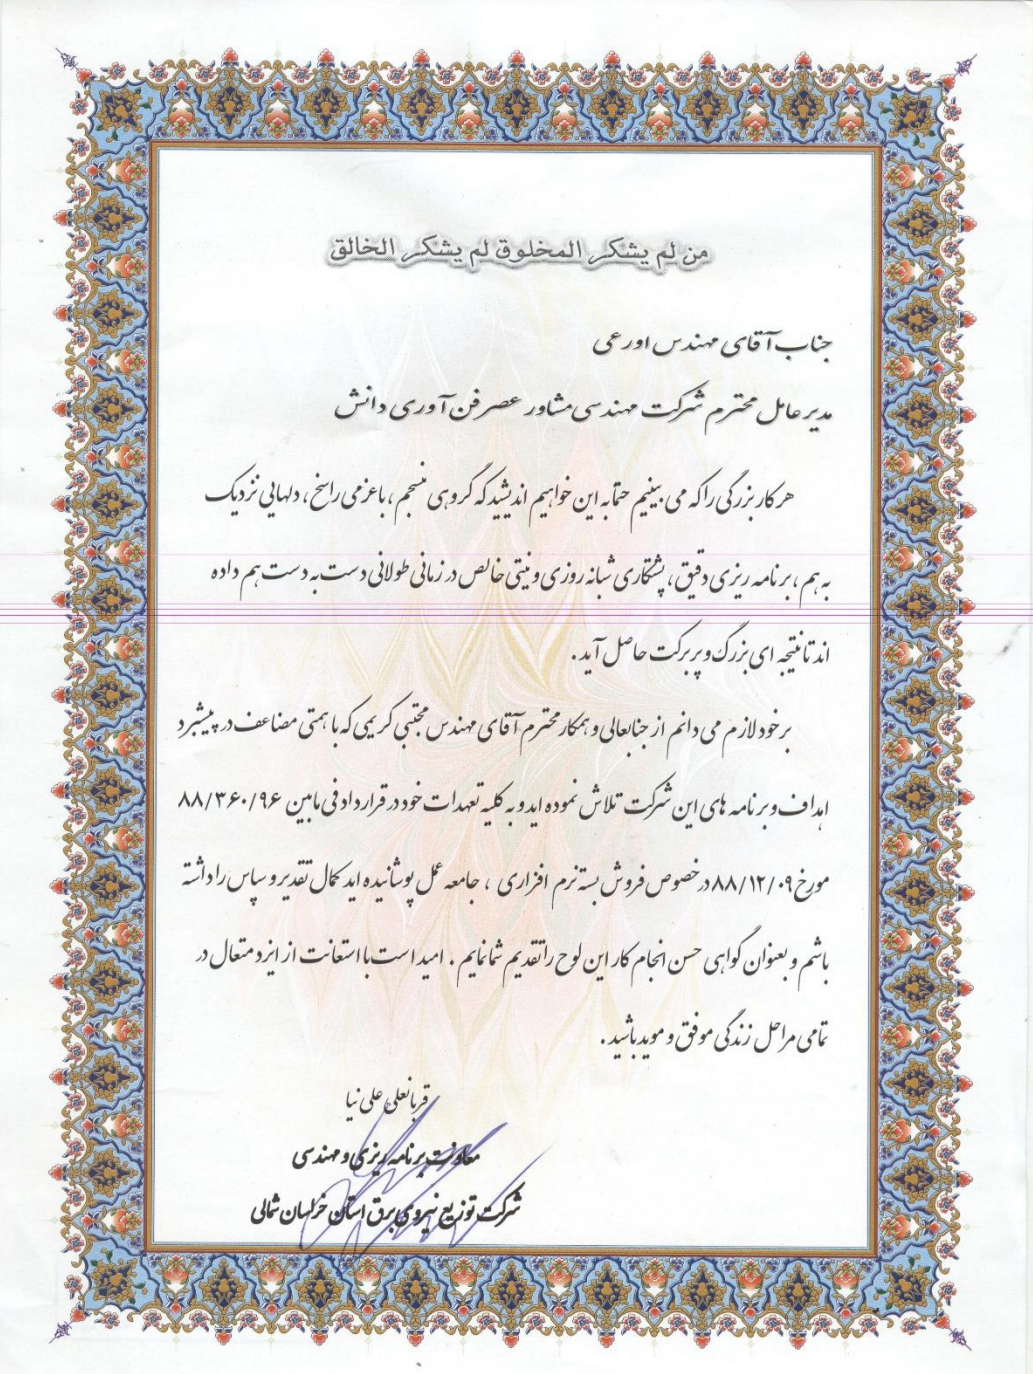 من لم یشکر المخلوق لم یشکر الخالق
جناب آقای مهندس اورعی
مدیر عامل محترم شرکت مهندسی مشاور عصر فن آوری دانش
هر کار بزرگی را که می بینیم حتما به این خواهیم اندیشید که گروهی منسجم ، با عزمی راسخ ، دلهایی نزدیک
به هم ، برنامه ریزی دقیق ، پشتکاری شبانه روزی و نیتی خالص در زمانی طولانی دست به دست هم داده
اند تا نتیجه ای بزرگ و پر برکت حاصل آید .
بر خود لازم می دانم از جنابعالی و همکار محترم آقای مهندس مجتبی کریمی که با همتی مضاعف در پیشبرد
اهداف و برنامه های این شرکت تلاش نموده اید و به کلیه تعهدات خود در قرارداد فی مابین ۸۸/۳۶۰/۹۶
مورخ ۸۸/۱۲/۰۹ در خصوص فروش بسته نرم افزاری ، جامعه عمل پوشانیده اید کمال تقدیر و سپاس را داشته
باشم و بعنوان گواهی حسن انجام کار این لوح را تقدیم شما نمایم . امید است با استعانت از ایزد متعال در
تمامی مراحل زندگی موفق و موید باشید .
قربانعلی علی نیا
معاونت برنامه ریزی و مهندسی
شرکت توزیع نیروی برق استان خراسان شمالی